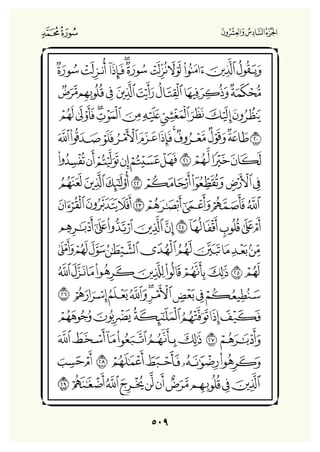 الجُزْءُ السَّادِسُ وَالعِشْرُونَ
سُورَةُ مُحَمَّدٍ
وَيَقُولُ الَّذِينَ ءَامَنُوا لَوْلَا نُزِّلَتْ سُورَةٌ ۖ فَإِذَا أُنزِلَتْ سُورَةٌ
مُّحْكَمَةٌ وَذُكِرَ فِيهَا الْقِتَالُ ۙ رَأَيْتَ الَّذِينَ فِي قُلُوبِهِم مَّرَضٌ
يَنظُرُونَ إِلَيْكَ نَظَرَ الْمَغْشِيِّ عَلَيْهِ مِنَ الْمَوْتِ ۖ فَأَوْلَىٰ لَهُمْ
٢٠ طَاعَةٌ وَقَوْلٌ مَّعْرُوفٌ ۚ فَإِذَا عَزَمَ الْأَمْرُ فَلَوْ صَدَقُوا اللَّهَ
لَكَانَ خَيْرًا لَّهُمْ ٢١ فَهَلْ عَسَيْتُمْ إِن تَوَلَّيْتُمْ أَن تُفْسِدُوا
فِي الْأَرْضِ وَتُقَطِّعُوا أَرْحَامَكُمْ ٢٢ أُولَٰئِكَ الَّذِينَ لَعَنَهُمُ
اللَّهُ فَأَصَمَّهُمْ وَأَعْمَىٰ أَبْصَارَهُمْ ٢٣ أَفَلَا يَتَدَبَّرُونَ الْقُرْءَانَ
أَمْ عَلَىٰ قُلُوبٍ أَقْفَالُهَا ٢٤ إِنَّ الَّذِينَ ارْتَدُّوا عَلَىٰ أَدْبَارِهِم
مِّن بَعْدِ مَا تَبَيَّنَ لَهُمُ الْهُدَى ۙ الشَّيْطَانُ سَوَّلَ لَهُمْ وَأَمْلَىٰ
لَهُمْ ٢٥ ذَٰلِكَ بِأَنَّهُمْ قَالُوا لِلَّذِينَ كَرِهُوا مَا نَزَّلَ اللَّهُ
سَنُطِيعُكُمْ فِي بَعْضِ الْأَمْرِ ۖ وَاللَّهُ يَعْلَمُ إِسْرَارَهُمْ ٢٦
فَكَيْفَ إِذَا تَوَفَّتْهُمُ الْمَلَائِكَةُ يَضْرِبُونَ وُجُوهَهُمْ
وَأَدْبَارَهُمْ ٢٧ ذَٰلِكَ بِأَنَّهُمُ اتَّبَعُوا مَا أَسْخَطَ اللَّهَ
وَكَرِهُوا رِضْوَانَهُ فَأَحْبَطَ أَعْمَالَهُمْ ٢٨ أَمْ حَسِبَ
الَّذِينَ فِي قُلُوبِهِم مَّرَضٌ أَن لَّن يُخْرِجَ اللَّهُ أَضْغَانَهُمْ ٢٩
٥٠٩